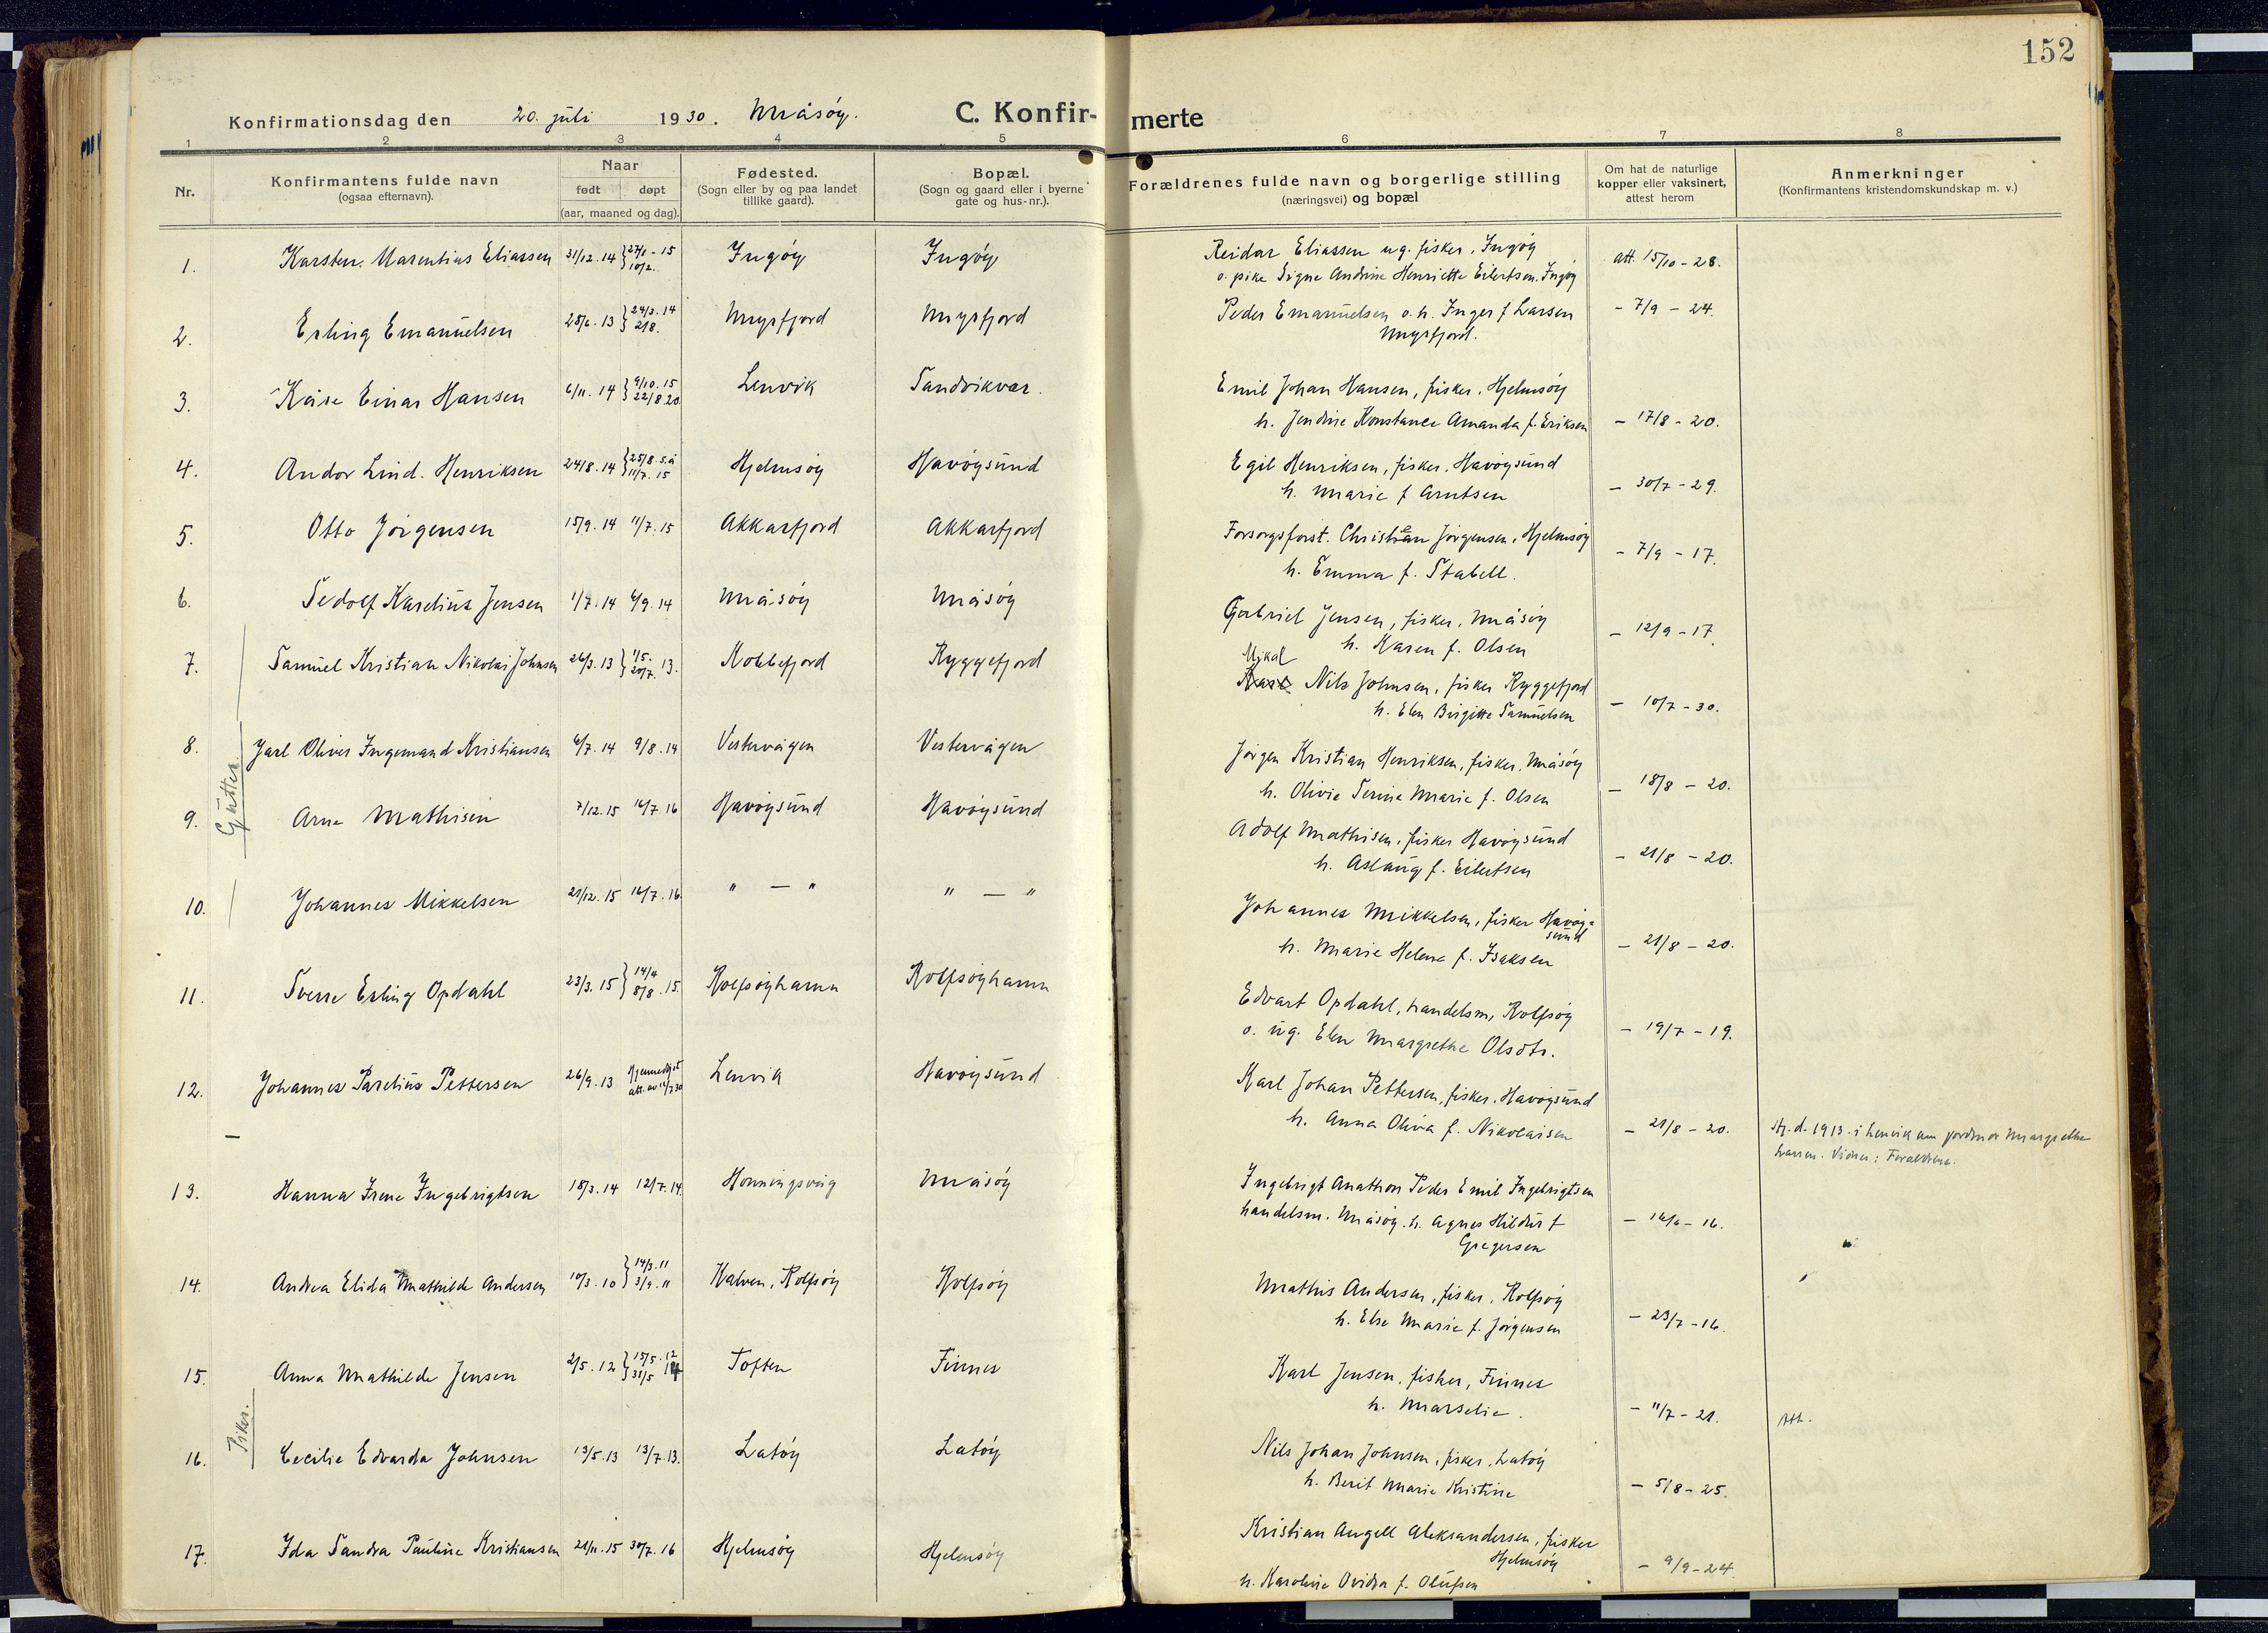 152
Konfirmationsdag den 20. juli 1930. Måsøy. C. Konfir-merte
1 2 3 4 5 6 7 8
Nr.
Konfirmantens fulde navn
(ogsaa efternavn).
Naar
født døpt
(aar, maaned og dag).
Fødested.
(Sogn eller by og paa landet
tillike gaard).
Bopæl.
(Sogn og gaard eller i byerne
gate og hus-nr.).
Forældrenes fulde navn og borgerlige stilling
(næringsvei) og bopæl
Om hat de naturlige
kopper eller vaksinert,
attest herom
Anmerkninger
(Konfirmantens kristendomskundskap m. v.)
1. Karsten Marentius Eliassen 31/12.14 Ingøy Ingøy Reidar Eliassen ug. fisker, Ingøy att. 15/10 - 28.
o. pike Signe Andrine Henriette Eilertsen, Ingøy
2. Erling Emanuelsen 28/6.13 } 24/3.14 2/8. Myrfjord Myrfjord Peder Emanuelsen o. h. Inger f Larsen - 7/9 - 24.
Myrfjord.
3. Kåre Einar Hansen 6/11.14 } 9/10.15 22/8 20 Lenvik Sandvikvær. Emil Johan Hansen, fisker, Hjelmsøy
h. Jendine Konstance Amanda f. Eriksen - 17/8 - 20.
4. Andor Lind. Henriksen 24/8.14 } 25/8 s.å 11/7.15 Hjelmsøy Havøysund Egil Henriksen, fisker, Havøysund
h. Marie f Arntsen - 30/7 - 29.
5. Otto Jørgensen 15/9.14 11/7.15 Akkarfjord Akkarfjord Forsorgsforst. Christian Jørgensen, Hjelmsøy
h. Emma f. Stabell. - 7/9 - 17.
6. Sedolf Karelius Jensen 1/7.14 6/9.14 Måsøy Måsøy Gabriel Jensen, fisker, Måsøy
h. Karen f. Olsen - 12/9 - 17.
7. Samuel Kristian Nikolai Johnsen 26/3.13 } 1/5. 20/7. 13. Kobbefjord Ryggefjord Mikal
Nils Johnsen, fisker Ryggefjord
h. Elen Birgitte Samuelsen - 10/7 - 30.
Gutter.
8. Jarl Oliver Ingemand Kristiansen 6/7.14 9/8.14 Vestervågen Vestervågen Jørgen Kristian Henriksen, fisker, Måsøy
h. Olivie Serine Marie f. Olsen - 18/8 - 20.
9. Arne Mathisen 7/12.15 16/7.16 Havøysund Havøysund Adolf Mathisen, fisker Havøysund
h. Aslaug f. Eilertsen - 21/8 - 20.
10. Johannes Mikkelsen 21/12.15 16/7.16 " — " " — " Johannes Mikkelsen, fisker Havøy-
sund
h. Marie Helene f. Isaksen - 21/8 - 20.
11. Sverre Erling Opdahl 23/3.15 } 14/4 8/8.15. Rolfsøyhamn Rolfsøyhamn Edvart Opdahl, handelsm, Rolfsøy
o. ug. Elen Margrethe Olsdtr. - 19/7 - 19.
12. Johannes Parelius Pettersen 26/9.13 Hjemmedøpt Lenvik Havøysund Karl Johan Pettersen, fisker, Havøysund
h. Anna Oliva f. Nikolaisen - 21/8 - 20. Hj. d. 1913 i Lenvik av jordmor Margrethe
Larsen. Vidner: Forældrene.
13. Hanna Irene Ingebrigtsen 18/3.14 12/7.14. Honningsvåg Måsøy Ingebrigt Anathon Peder Emil Ingebrigtsen
handelsm. Måsøy. h. Agnes Hildur f
Gregersen - 16/6 - 16.
14. Andrea Elida Mathilde Andersen 10/3.10 } 14/3.11 3/9.11 Kalven, Rolfsøy Rolfsøy Mathis Andersen, fisker, Rolfsøy
h. Else Marie f. Jørgensen - 23/7 - 16.
15. Anna Mathilde Jensen 2/5.12 } 15/5.12 31/5 14 Toften Finnes Karl Jensen, fisker, Finnes
h. Marselie. - 11/7 - 21. Att.
Piker.
16. Cecilie Edvarda Johnsen 13/5.13 13/7.13. Latøy Latøy Nils Johan Johnsen, fisker, Latøy
h. Berit Marie Kristine - 5/8 - 25.
17. Ida Sandra Pauline Kristiansen 21/11.15 30/7.16 Hjelmsøy Hjelmsøy Kristian Angell Aleksandersen, fisker
Hjelmsøy
h. Karoline Ovidia f. Olufsen - 9/9 - 24.